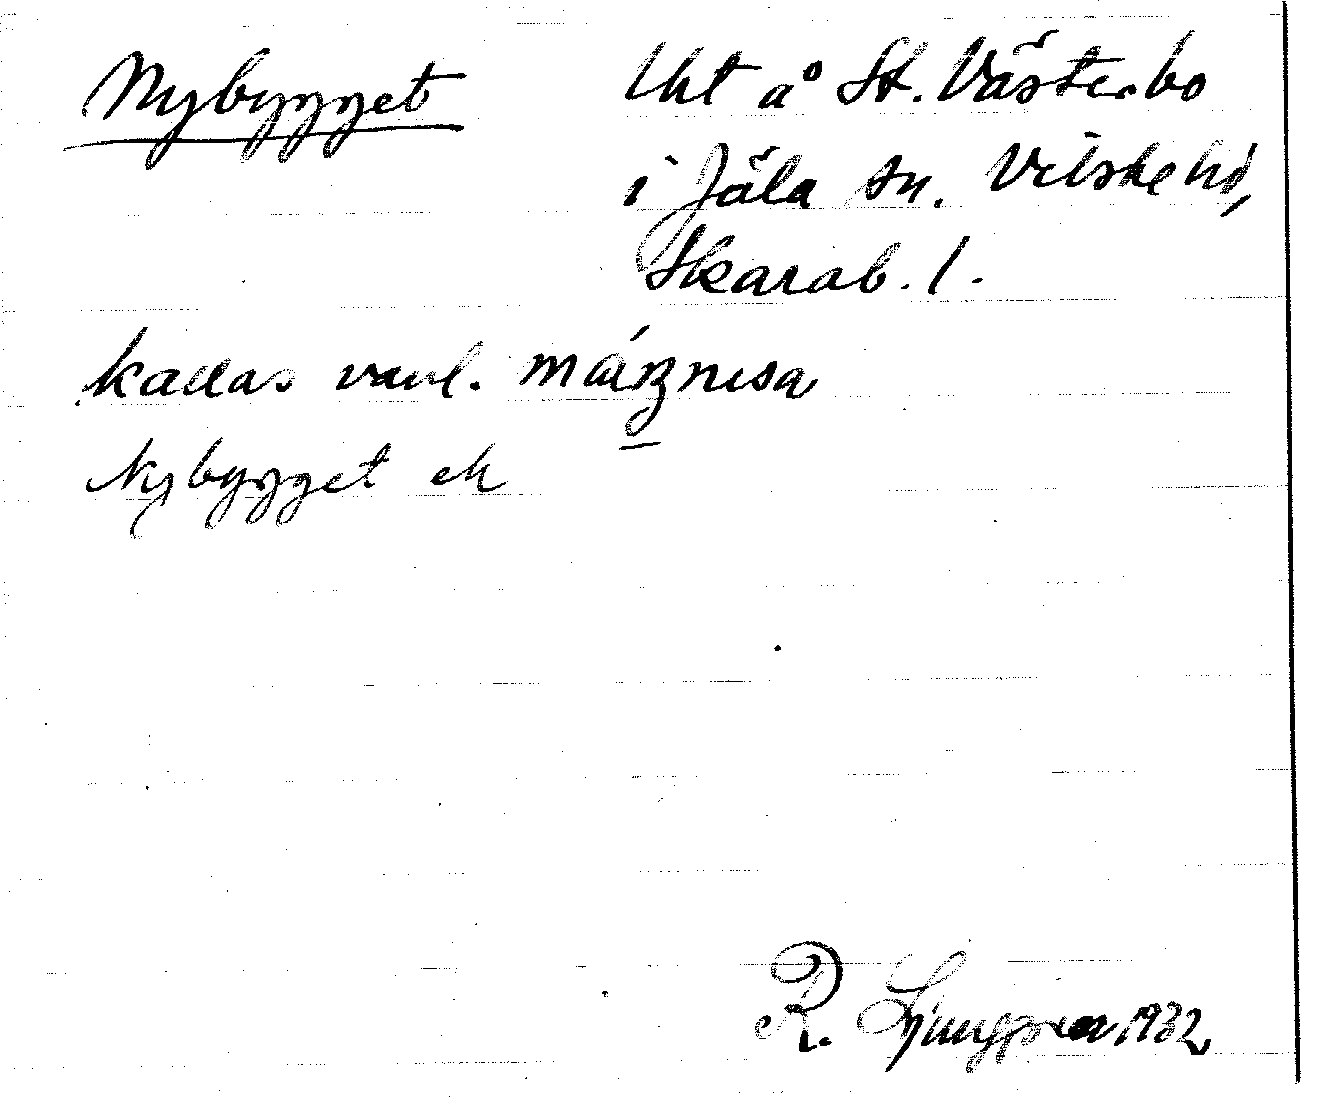 Nybygget
Uht å St. Västerbo
i Jäla sn. Vilske hd,
Skarab. l.
kallas vanl.
Nybygget
R. Ljunggren 1932